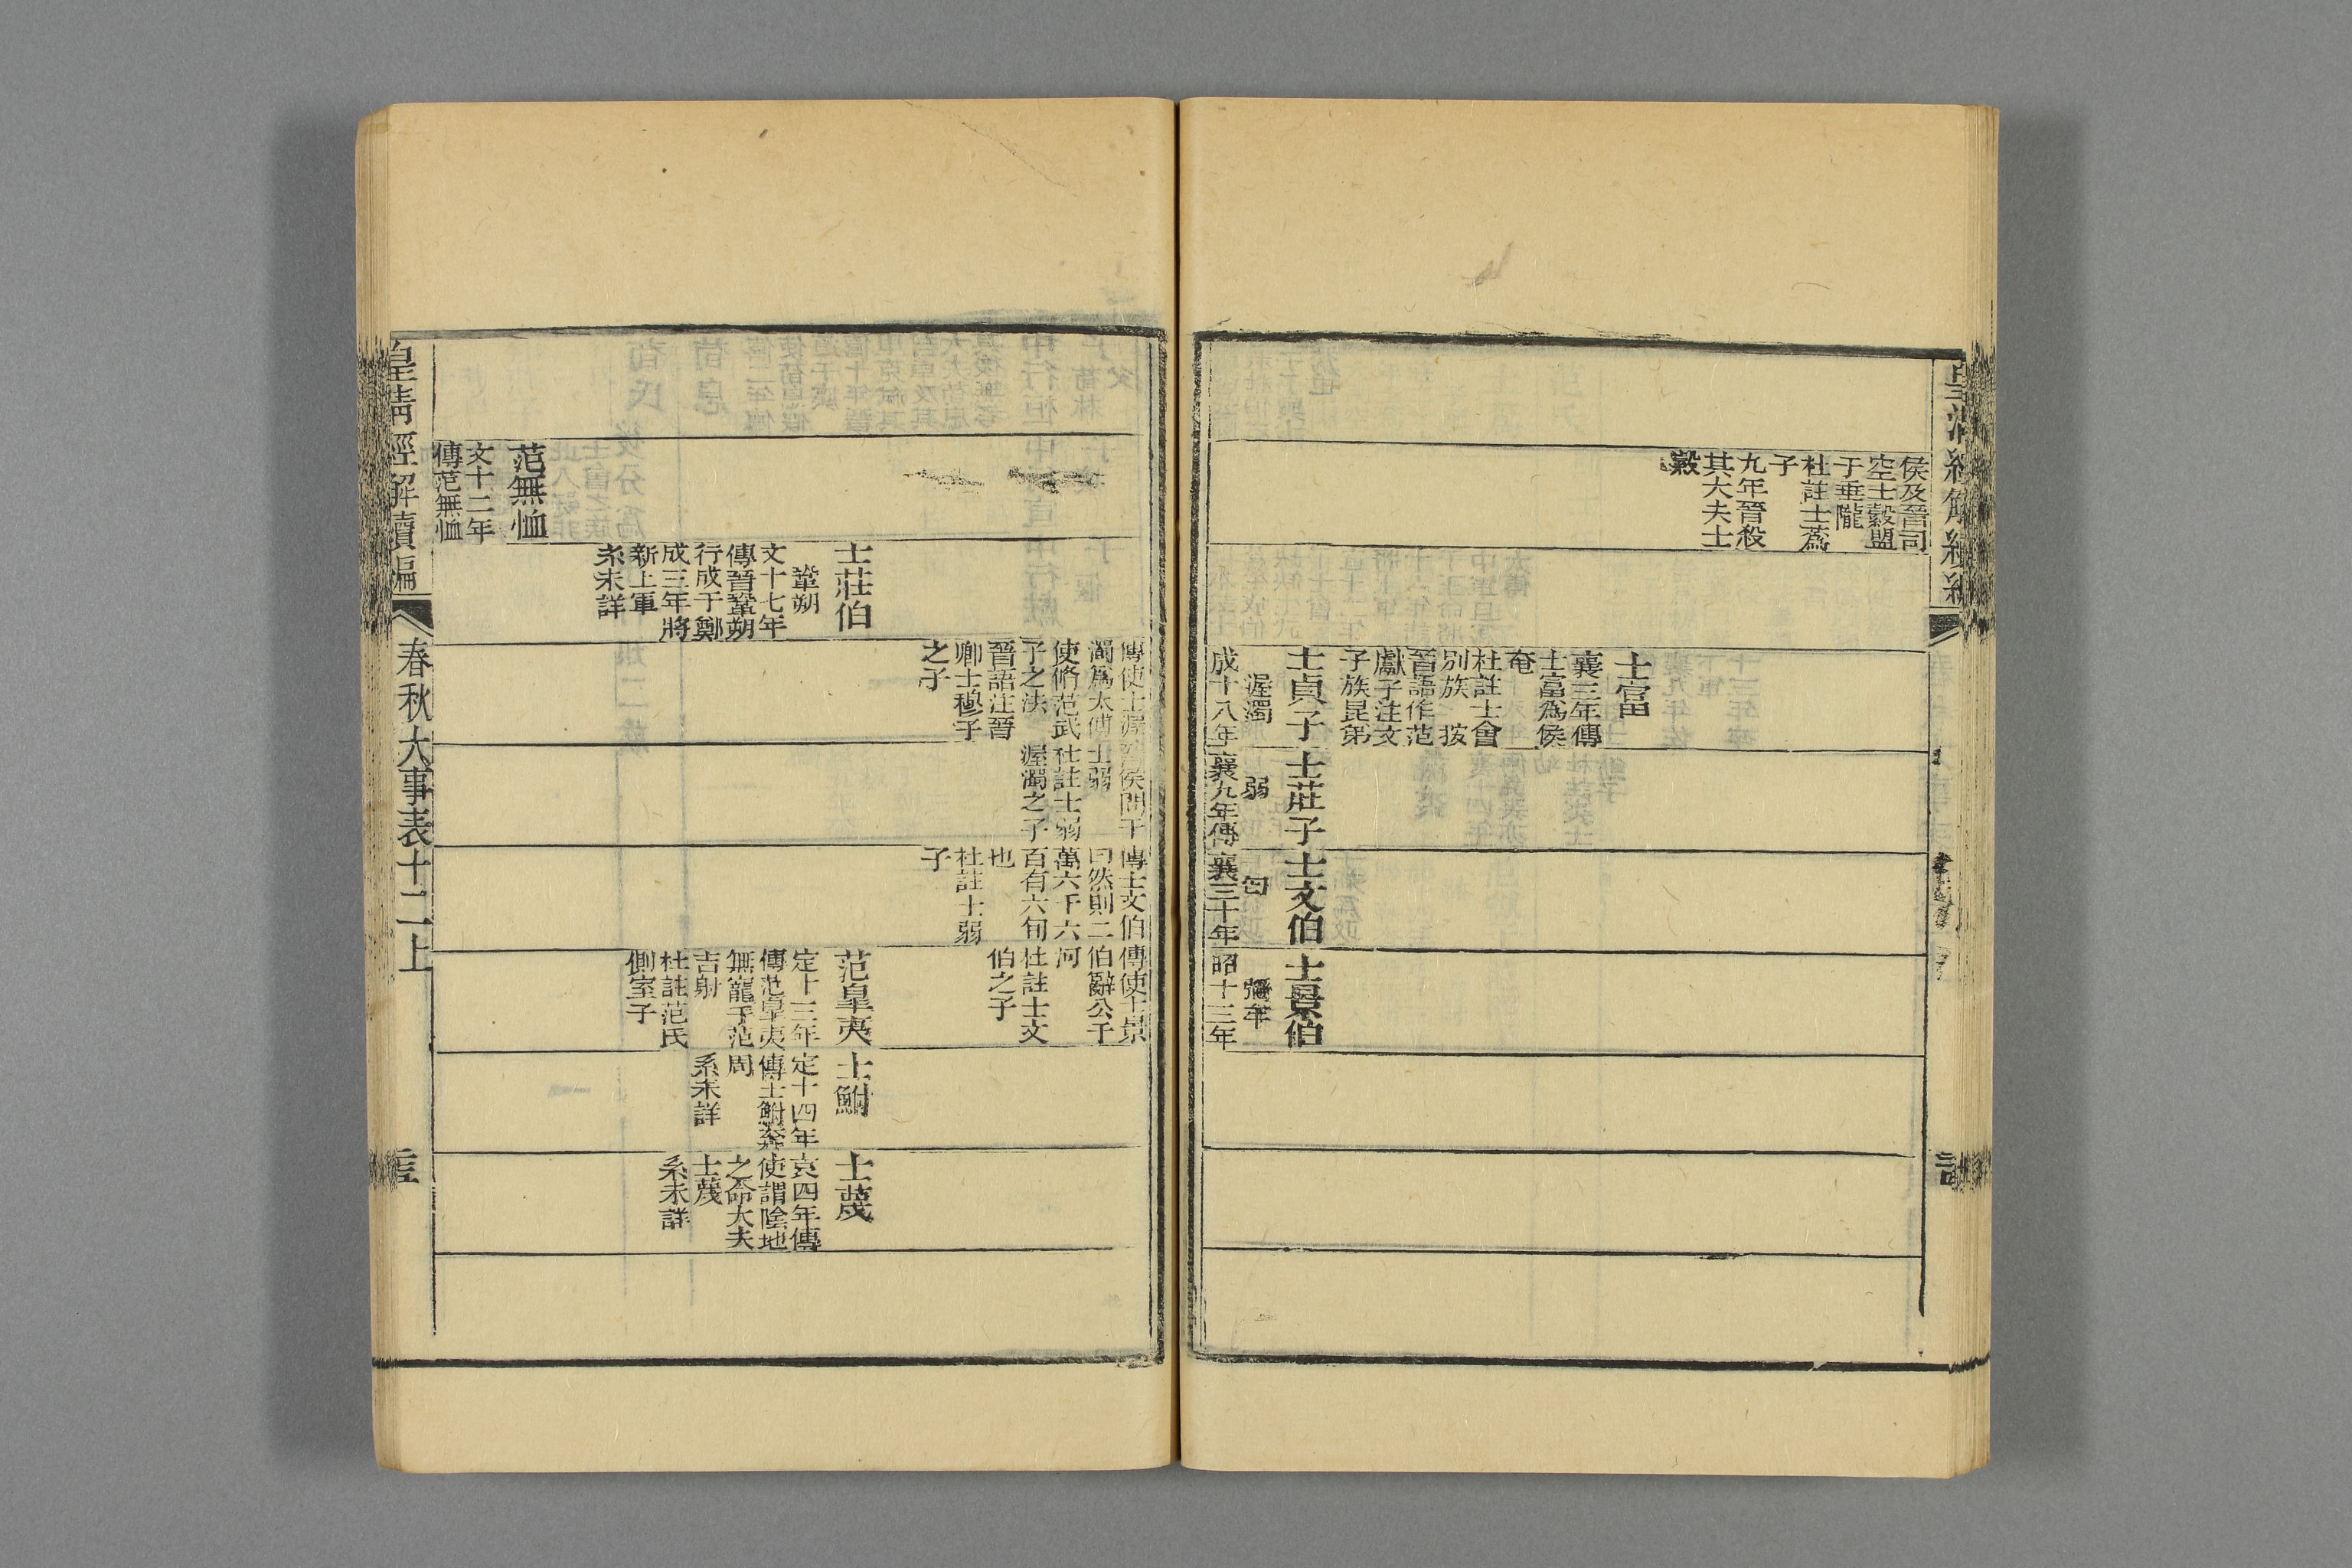 侯及晉司
空士縠盟
于垂隴
杜註士蒍
子
九年晉殺
其大夫士
縠
士富
襄三年傳
士富爲侯
奄
杜註士會
別族 按
晉語作范
獻子注文
子族昆弟
士貞子
渥濁
成十八年
士莊子
弱
襄九年傳
士文伯
匄
襄三十年
士景伯
彌牟
昭十三年
傳使士渥
濁爲太傅
使脩范武
子之法
晉語注晉
卿士穆子
之子
晉侯問于
士弱
杜註士弱
渥濁之子
傳士文伯
曰然則二
萬六千六
百有六旬
也
杜註士弱
子
傳使士景
伯辭公于
河
杜註士文
伯之子
士莊伯
鞏朔
文十七年
傳晉鞏朔
行成于鄭
成三年將
新上軍
系未詳
范皋夷
定十三年
傳范皋夷
無寵于范
吉射
杜註范氏
側室子
士鮒
定十四年
傳士鮒奔
周
系未詳
士蔑
哀四年傳
使謂陰地
之命大夫
士蔑
系未詳
范無恤
文十二年
傳范無恤
皇清經解續編
春秋大事表十二上